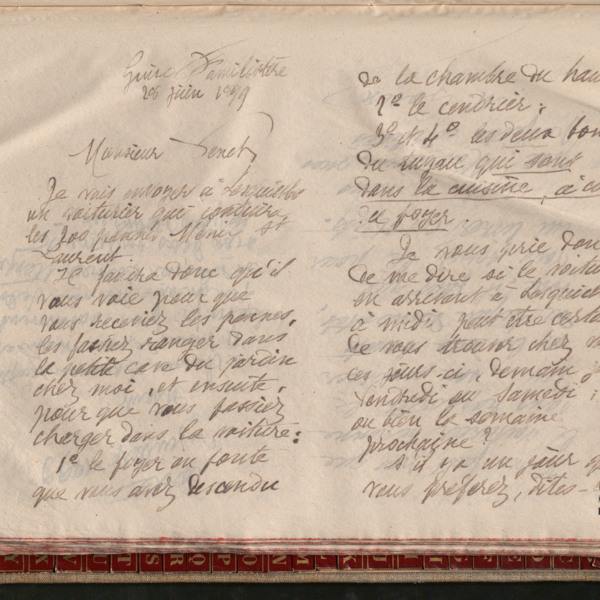 Guise Familistère
28 juin 1899
Monsieur Senet
Je vais envoyer à Lesquielles
un voiturier qui conduira
les 200 pannes Ménil St
Laurent.
Il faudra donc qu'il
vous voie pour que
vous receviez les pannes,
les fassiez ranger dans
la petite cave du jardin
chez moi, et ensuite,
pour que vous fassiez
charger dans la voiture:
1º le foyer en fonte
que vous avez descendu
de la chambre du hau
2º le cendrier;
3º et 4º les deux
du tuyau qui sont
dans la cuisine, à
du foyer.
Je vous prie don
de me dire si le voitur
en arrivant à Lesquiel
à midi peut être certa
de vous trouver chez
ces jours-ci, demain
vendredi ou samedi;
ou bien la semaine
prochaine?
S'il y a un jour q
vous préférez, dites-